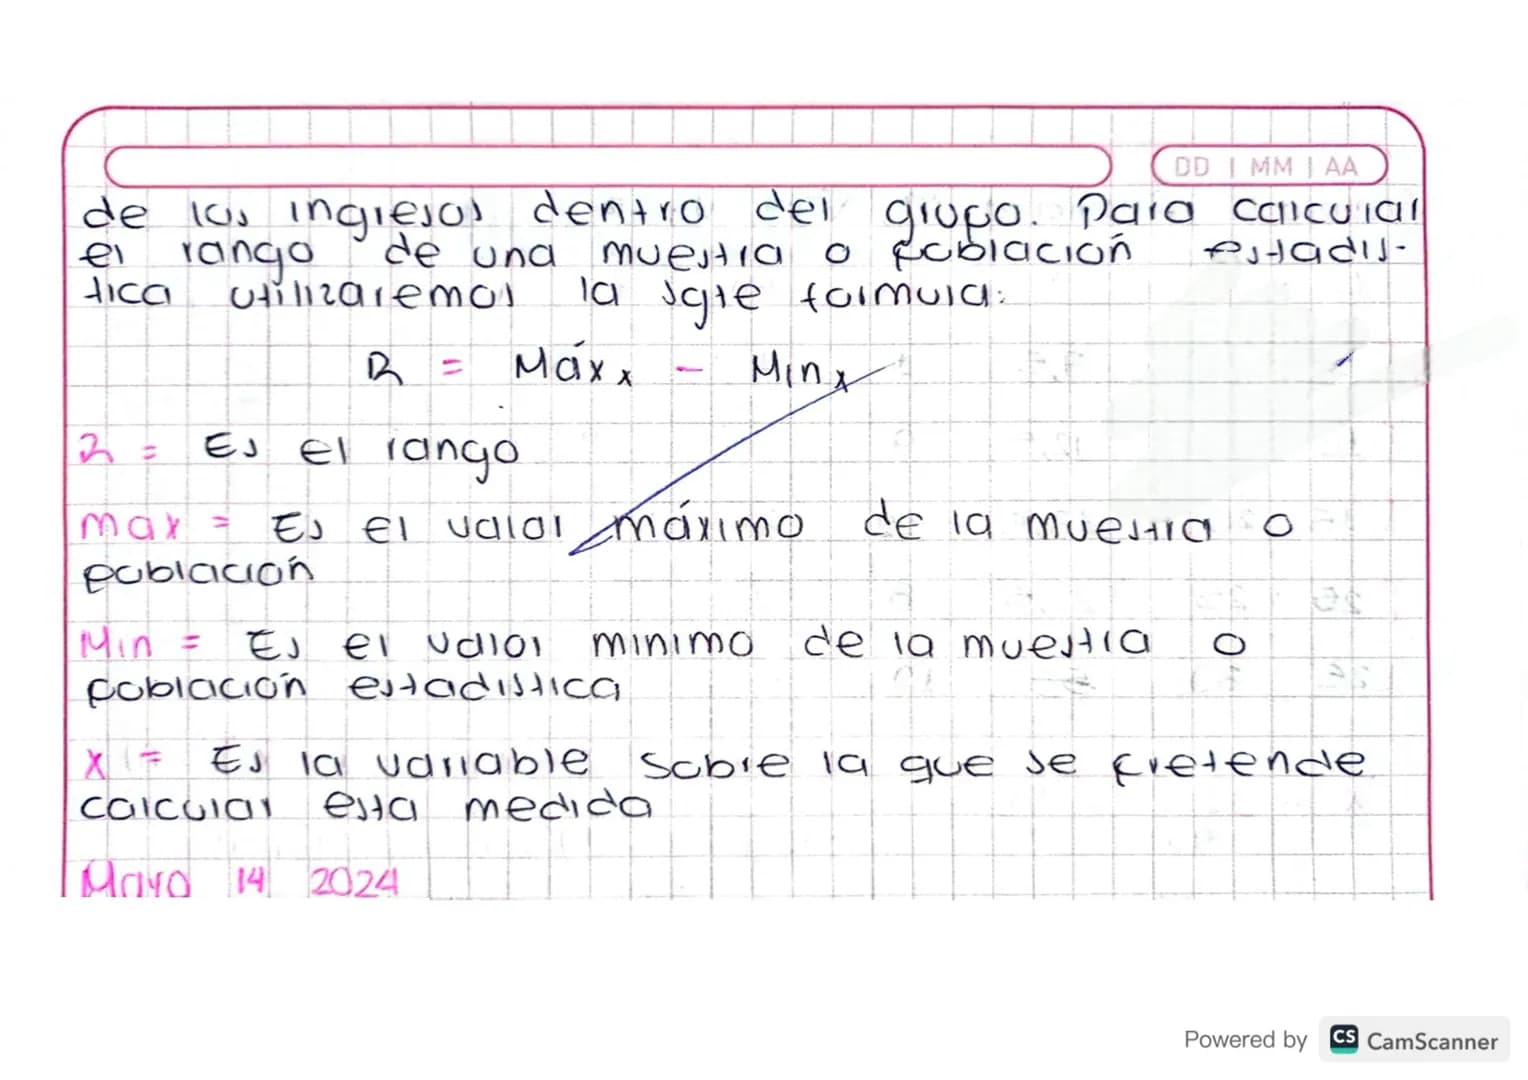 DD | MM | AA
de los ingresos dentro del grupo. Para calcular
el rango de una muestra o población estadis-
tica utilizaremos la sgte formula:
R = Máx x - Min x
R = Es el rango
max = Es el valor máximo de la muestra o
población
Min = Es el valor minimo de la muestra o
población estadistica
x = Es la variable sobre la que se pretende
calcular esta medida
Mayo 14 2024
Powered by CS CamScanner